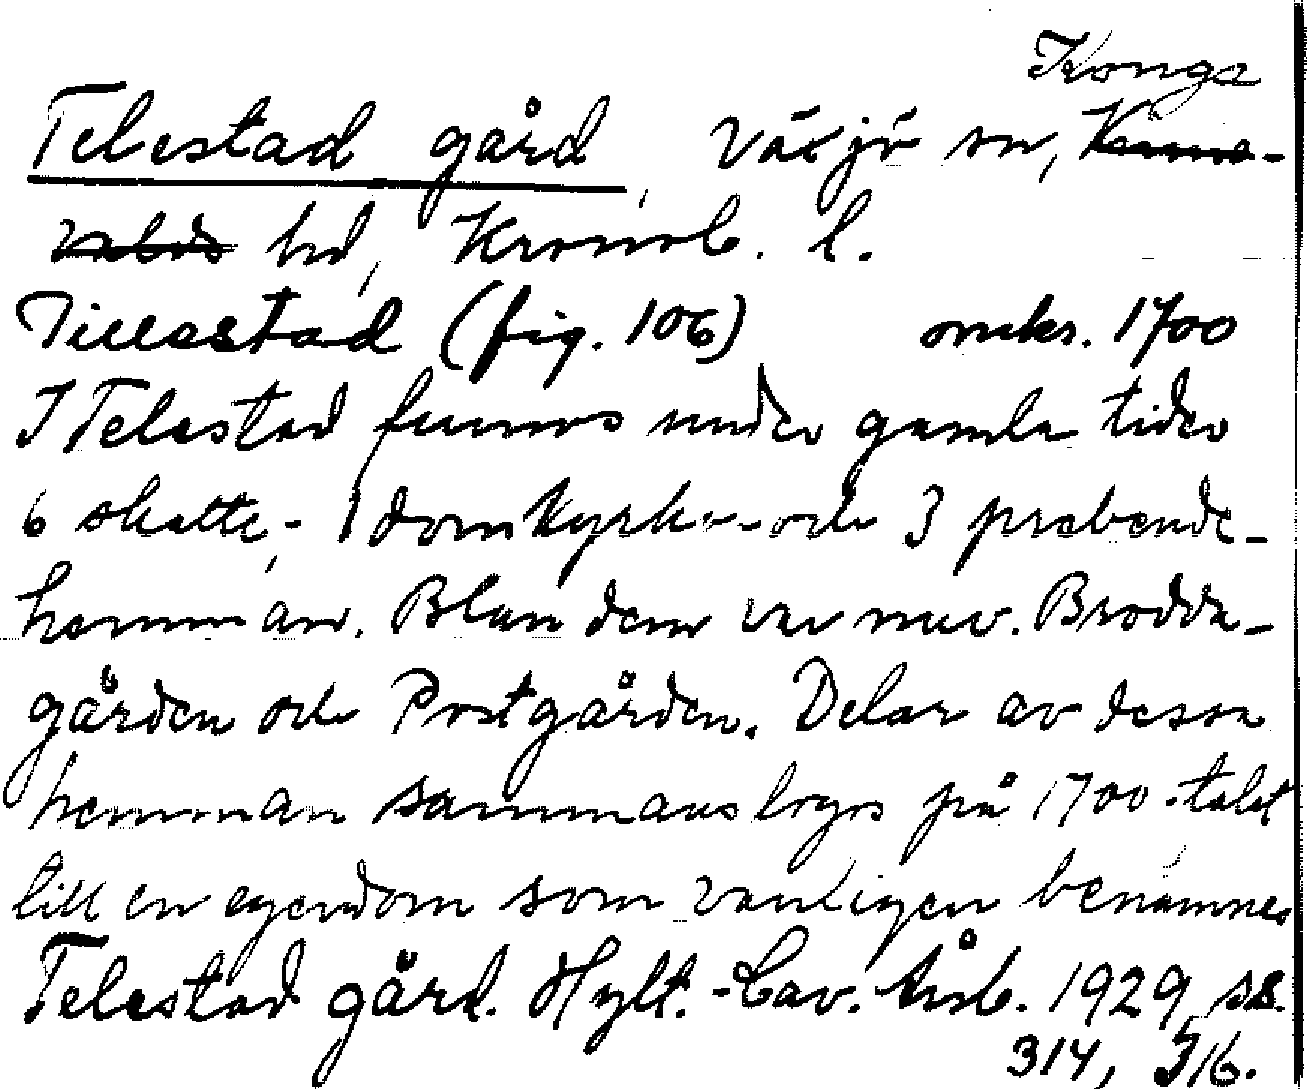 Konga
Telestad gård, Växjö sn, Kinne-
valds hd, Kronob. l.
Tillestad (fig. 106) omkr. 1700
I Telestad funnos under gamla tider
6 skatte-, 1 domkyrko- och 3 prebende-
hemman. Bland dem var nuv. Brodda-
gården och Postgården. Delar av dessa
hemman sammanslogos på 1700-talet
till en egendom som vanligen benämnes
Telestad gård. Hylt.-Cav. Årsb. 1929, ss.
314, 316.